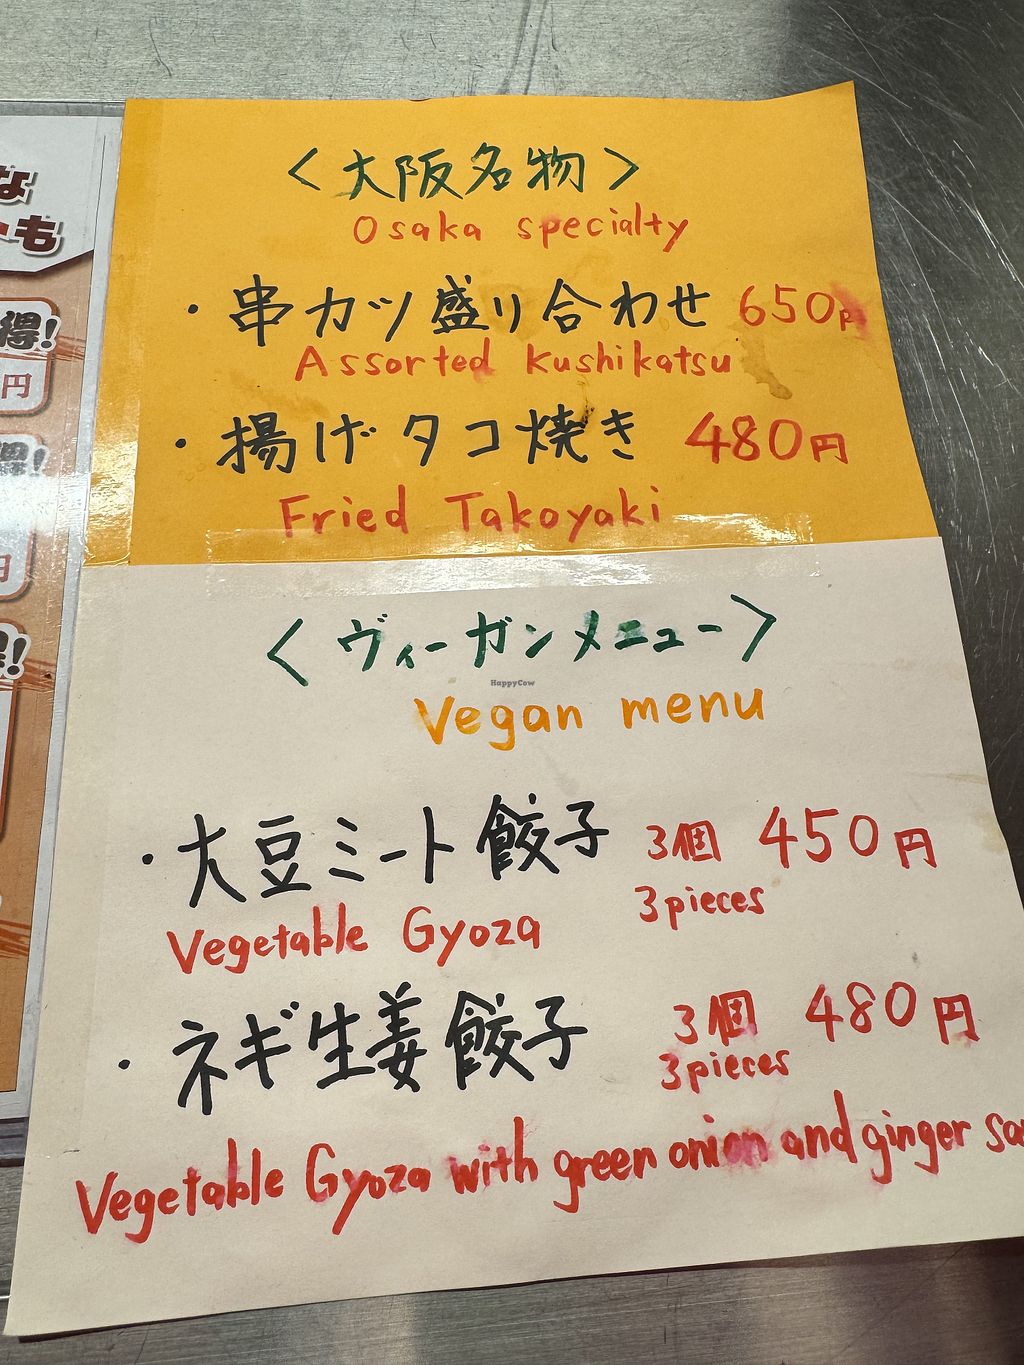 な
も
得!
円
得!
円
得!
〈大阪名物〉
Osaka specialty
・串カツ盛り合わせ 650円
Assorted Kushikatsu
・揚げタコ焼き 480円
Fried Takoyaki
〈ヴィーガンメニュー〉
HappyCow
Vegan menu
・大豆ミート餃子 3個 450円
Vegetable Gyoza 3pieces
・ネギ生姜餃子 3個 480円
3pieces
Vegetable Gyoza with green onion and ginger